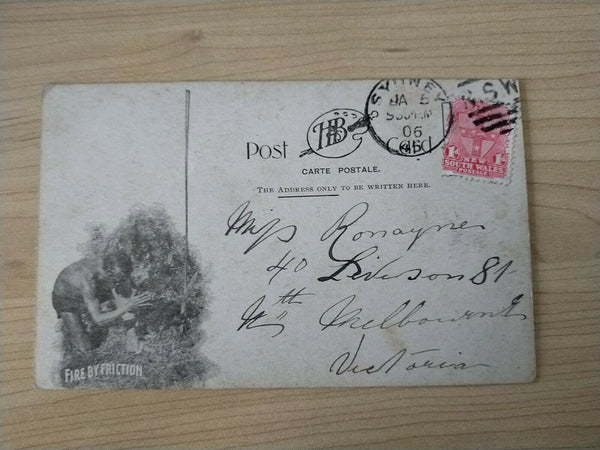 SYDNEY
JA 5
9 30 PM
06
46
N.S.W
Post THB Card
CARTE POSTALE.
THE ADDRESS ONLY TO BE WRITTEN HERE.
1D 1D
NEW
SOUTH WALES
POSTAGE
Miss Ronayne
40 St
Nth Melbourne
Victoria
FIRE BY FRICTION